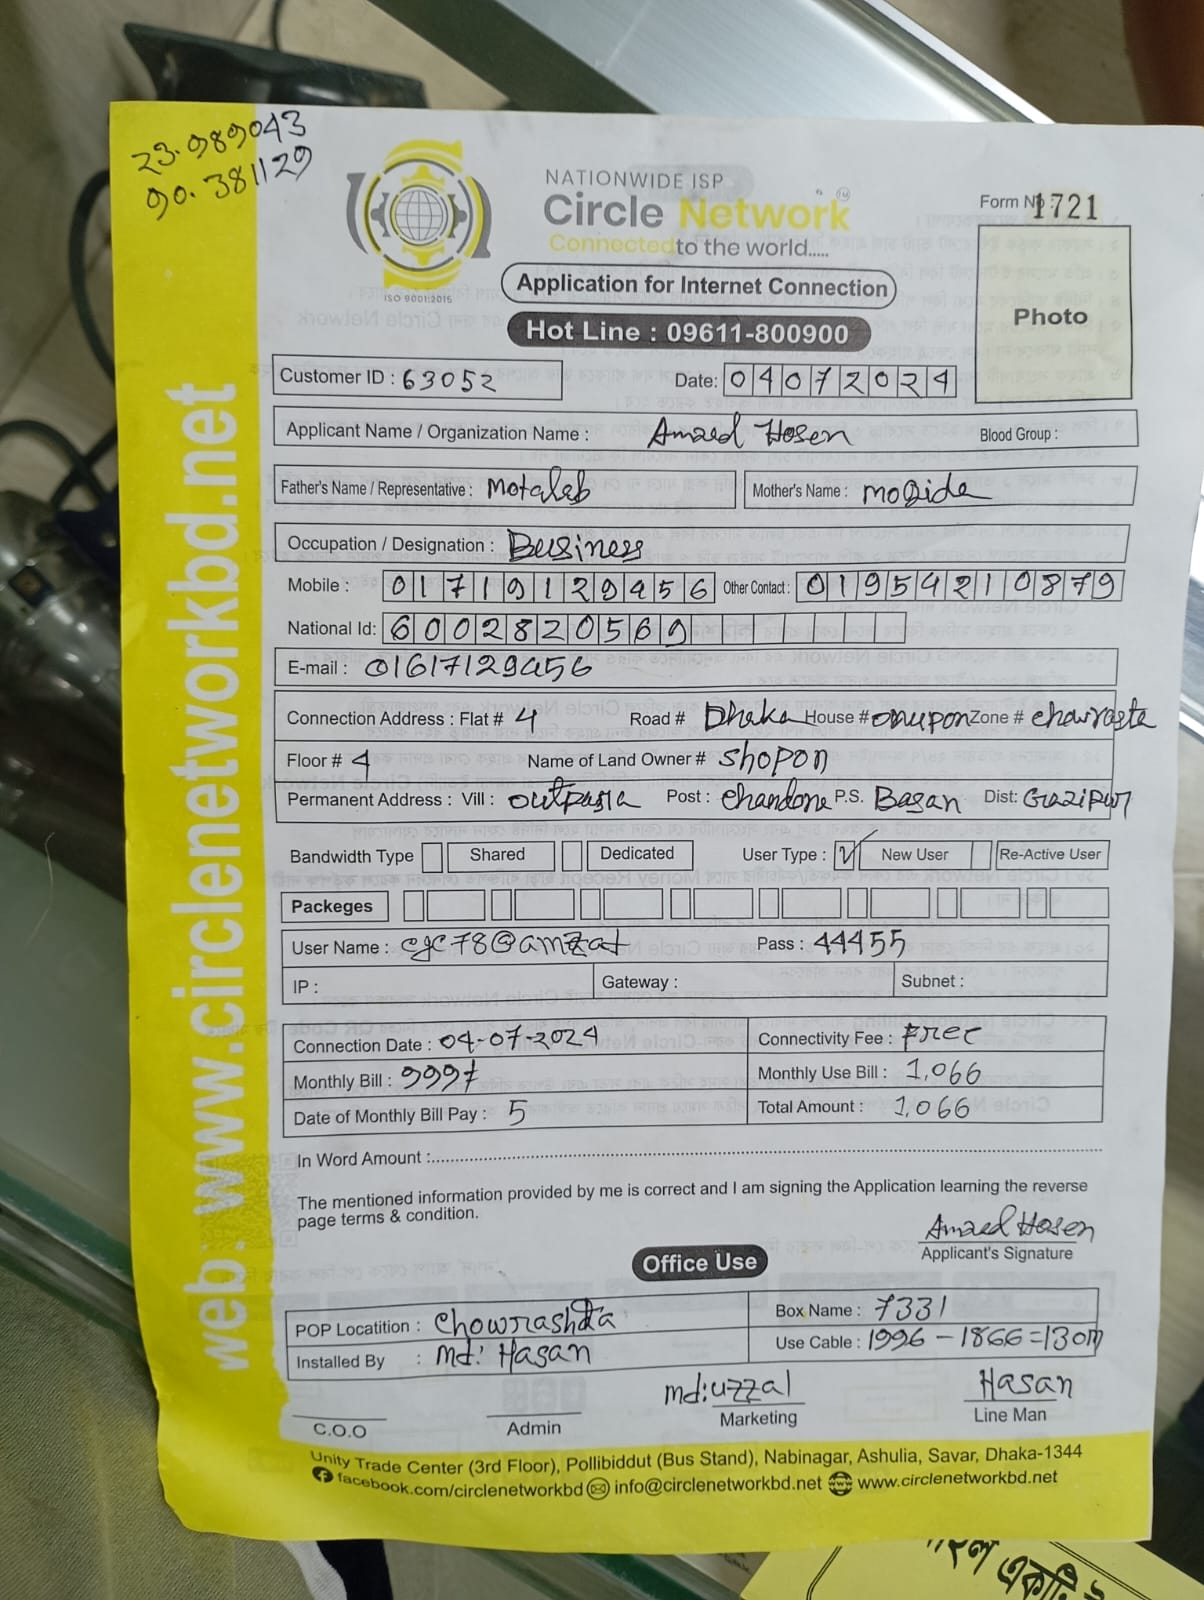 23.989043
90.381129
NATIONWIDE ISP
Circle Network
Connected to the world.....
ISO 9001:2015
Application for Internet Connection
Hot Line : 09611-800900
Form No : 1721
Photo
Customer ID : 63052 Date: 04072024
Applicant Name / Organization Name : Amzed Hosen Blood Group :
Father's Name / Representative : Motaleb Mother's Name : moqida
Occupation / Designation : Business
Mobile : 01719129456 Other Contact : 01954210879
National Id: 6002820569
E-mail : 01617129456
Connection Address : Flat # 4 Road # Dhaka House # onupon Zone # chowrasta
Floor # 4 Name of Land Owner # shopon
Permanent Address : Vill : outpasa Post : chandona P.S. Basan Dist: Gazipur
Bandwidth Type Shared Dedicated User Type : New User Re-Active User
Packeges
User Name : cgc78@amzat Pass : 44455
IP : Gateway : Subnet :
Connection Date : 04-07-2024 Connectivity Fee : Free
Monthly Bill : 999 Monthly Use Bill : 1,066
Date of Monthly Bill Pay : 5 Total Amount : 1,066
In Word Amount :
The mentioned information provided by me is correct and I am signing the Application learning the reverse
page terms & condition.
Amzed Hosen
Applicant's Signature
Office Use
POP Locatition : Chowrashta Box Name : 7331
Installed By : Md: Hasan Use Cable : 1996 - 1866 = 130m
md:uzzal Hasan
C.O.O Admin Marketing Line Man
Unity Trade Center (3rd Floor), Pollibiddut (Bus Stand), Nabinagar, Ashulia, Savar, Dhaka-1344
facebook.com/circlenetworkbd info@circlenetworkbd.net www.circlenetworkbd.net
web: www.circlenetworkbd.net